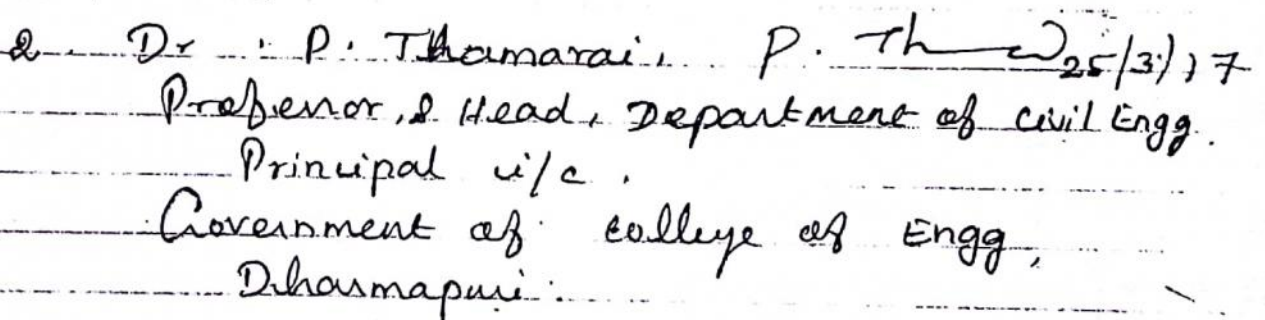 2. Dr. P. Thamarai, P. Th 25/3/17
Professor, & Head, Department of Civil Engg.
Principal i/c.
Government of college of Engg,
Dharmapuri.